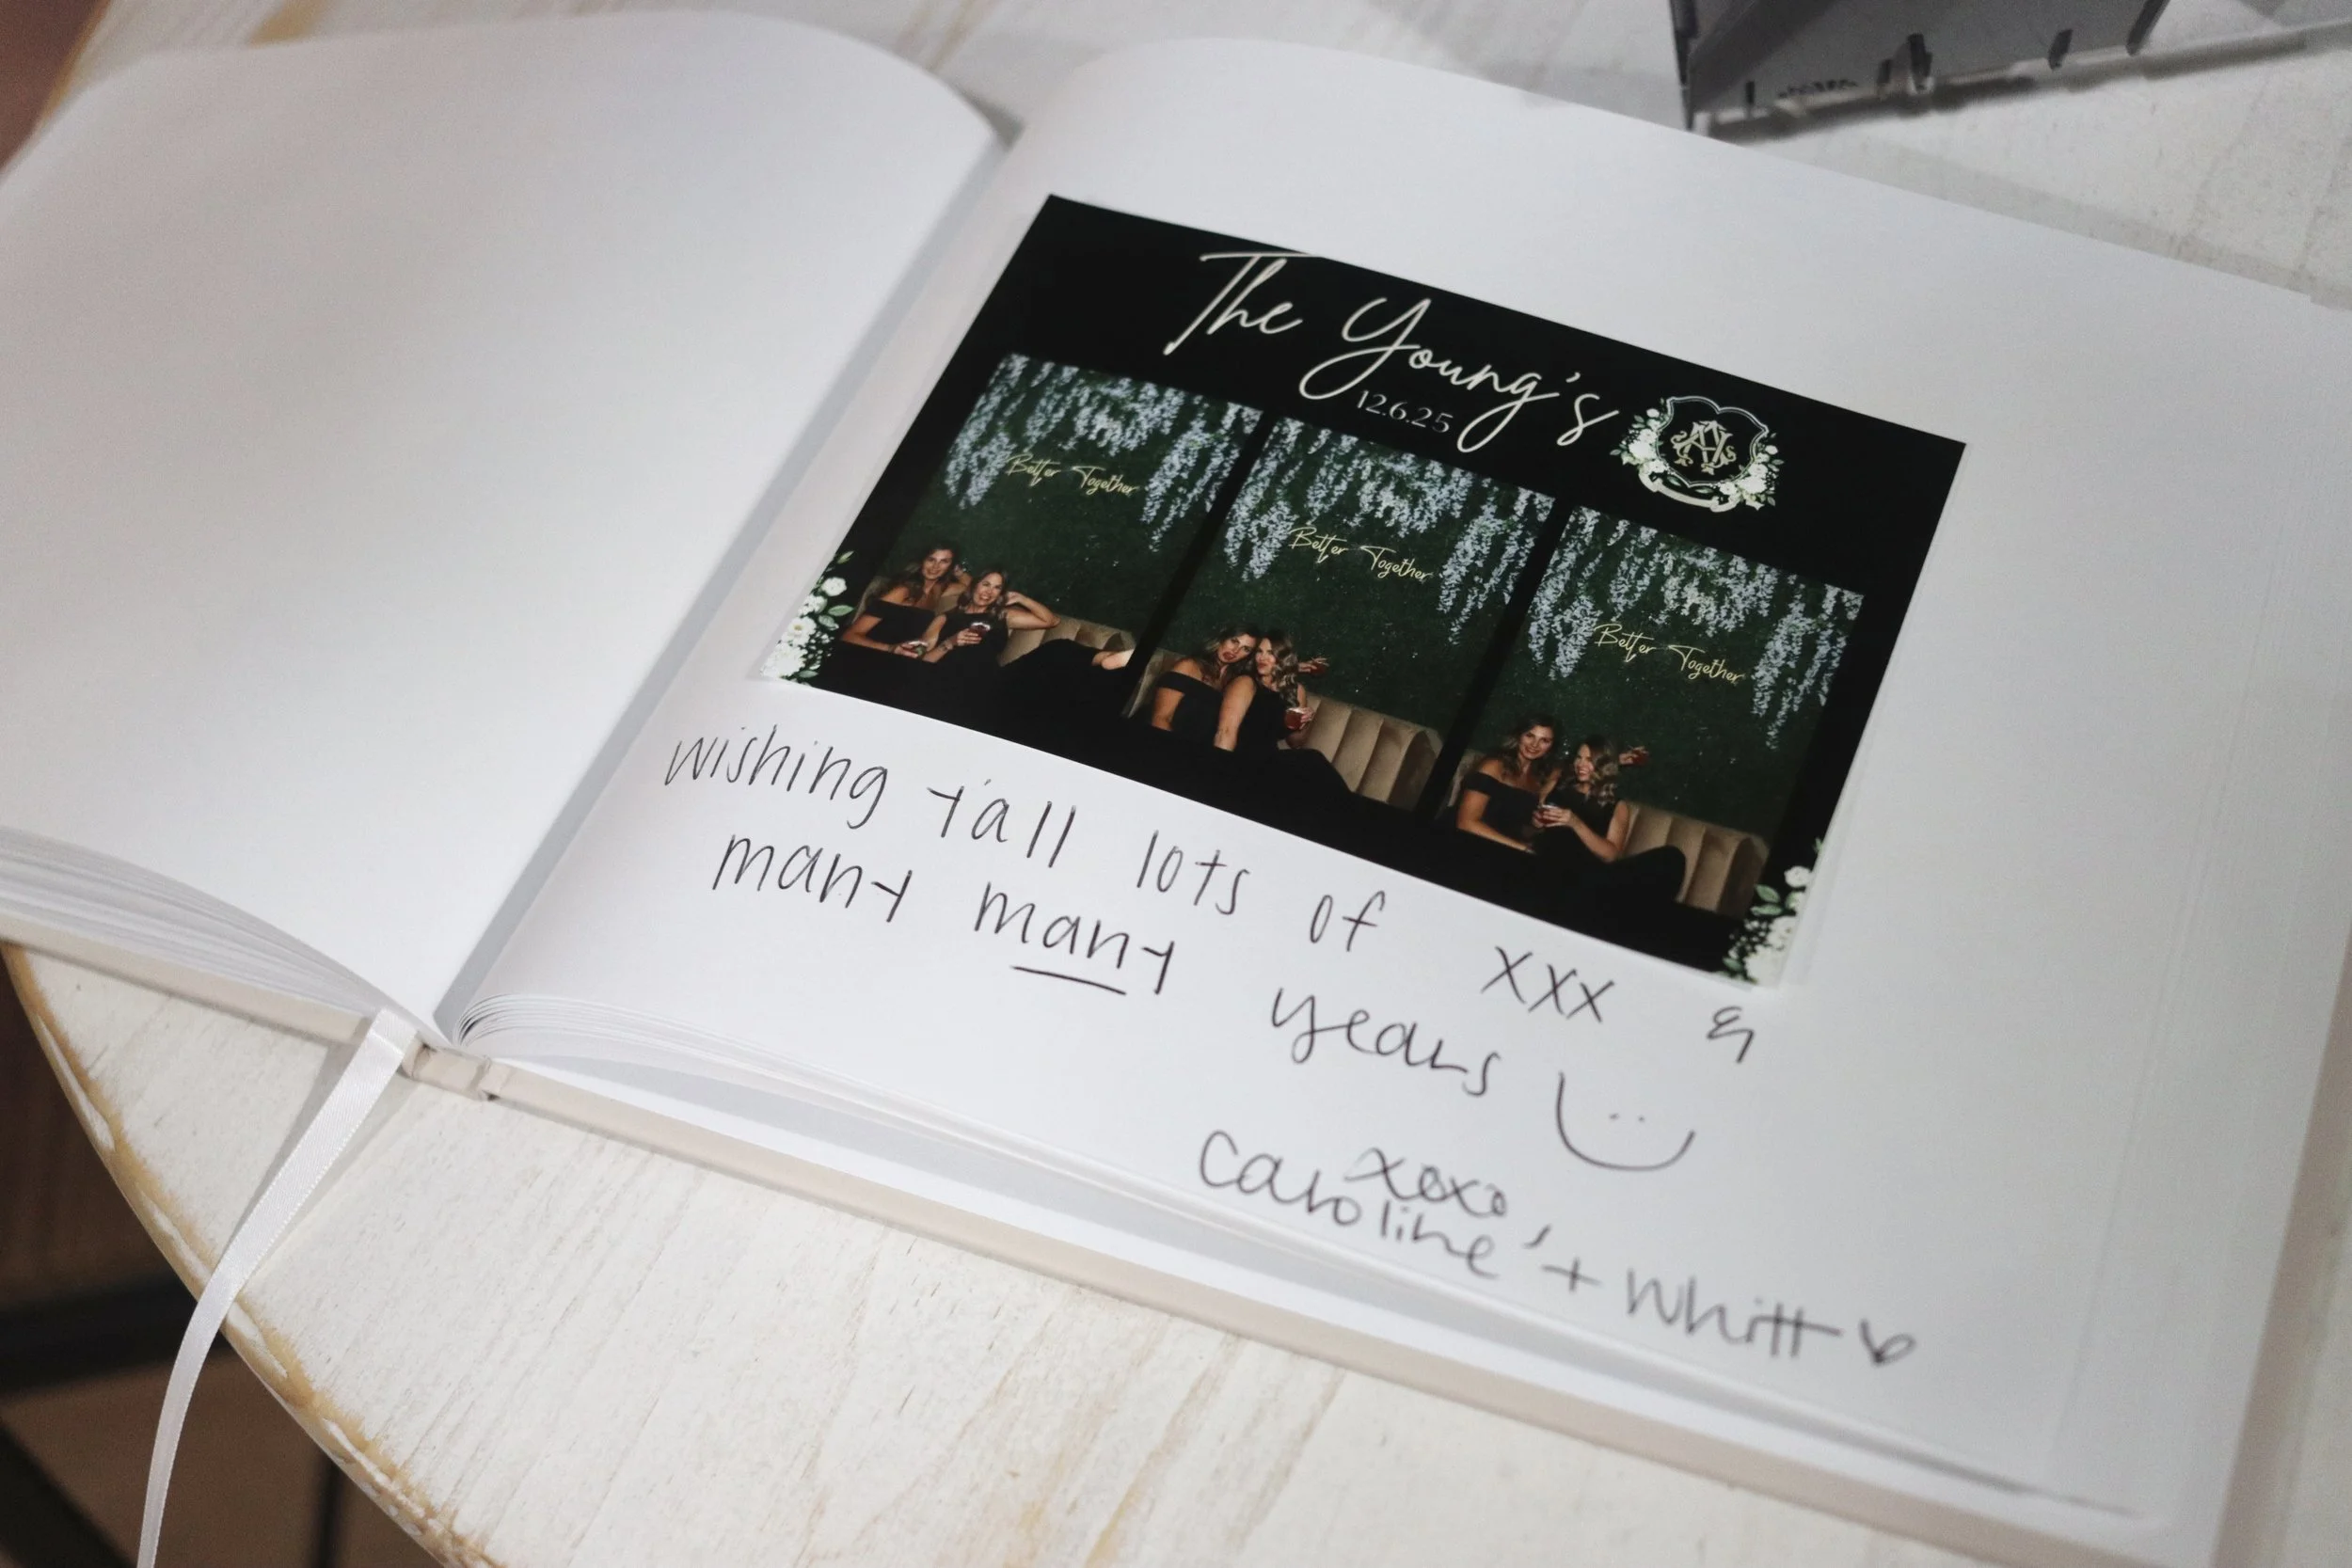 The Young's
12.6.25
Better Together
Better Together
Better Together
wishing y'all lots of xxx &
many many years
xoxo,
caroline + Whitt